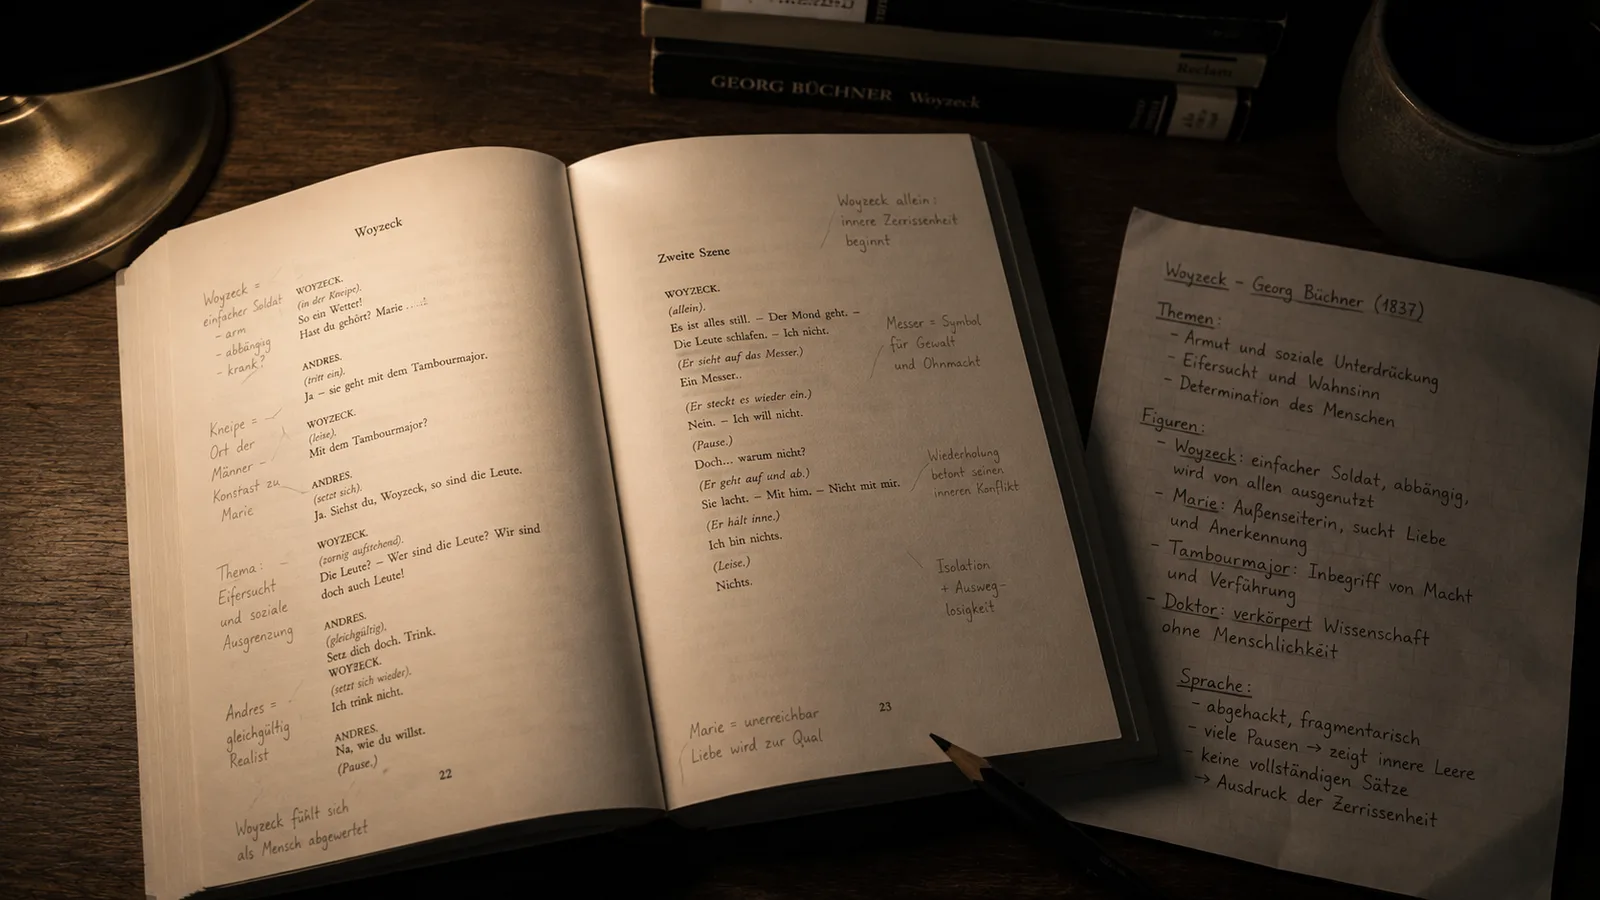 GEORG BÜCHNER Woyzeck
Reclam
Woyzeck
WOYZECK.
(in der Kneipe).
So ein Wetter!
Hast du gehört? Marie ....!
ANDRES.
(tritt ein).
Ja – sie geht mit dem Tambourmajor.
WOYZECK.
(leise).
Mit dem Tambourmajor?
ANDRES.
(setzt sich).
Ja. Siehst du, Woyzeck, so sind die Leute.
WOYZECK.
(zornig aufstehend).
Die Leute? – Wer sind die Leute? Wir sind
doch auch Leute!
ANDRES.
(gleichgültig).
Setz dich doch. Trink.
WOYZECK.
(setzt sich wieder).
Ich trink nicht.
ANDRES.
Na, wie du willst.
(Pause.)
22
Woyzeck =
einfacher Soldat
- arm
- abbängig
- krank?
Kneipe =
Ort der
Männer –
Konstast zu
Marie
Thema: –
Eifersucht
und soziale
Ausgrenzung
Andres =
gleichgültig
Realist
Woyzeck fühlt sich
als Mensch abgewertet
Zweite Szene
WOYZECK.
(allein).
Es ist alles still. – Der Mond geht. –
Die Leute schlafen. – Ich nicht.
(Er sieht auf das Messer.)
Ein Messer..
(Er steckt es wieder ein.)
Nein. – Ich will nicht.
(Pause.)
Doch... warum nicht?
(Er geht auf und ab.)
Sie lacht. – Mit him. – Nicht mit mir.
(Er hält inne.)
Ich bin nichts.
(Leise.)
Nichts.
23
Woyzeck allein:
innere Zerrissenheit
beginnt
Messer = Symbol
für Gewalt
und Ohnmacht
Wiederholung
betont seinen
inneren Konflikt
Isolation
+ Ausweg-
losigkeit
Marie = unerreichbar
Liebe wird zur Qual
Woyzeck – Georg Büchner (1837)
Themen:
- Armut und soziale Unterdrückung
- Eifersucht und Wahnsinn
- Determination des Menschen
Figuren:
- Woyzeck: einfacher Soldat, abbängig,
wird von allen ausgenutzt
- Marie: Außenseiterin, sucht Liebe
und Anerkennung
- Tambourmajor: Inbegriff von Macht
und Verführung
- Doktor: verkörpert Wissenschaft
ohne Menschlichkeit
Sprache:
- abgehackt, fragmentarisch
- viele Pausen → zeigt innere Leere
- keine vollständigen Sätze
→ Ausdruck der Zerrissenheit